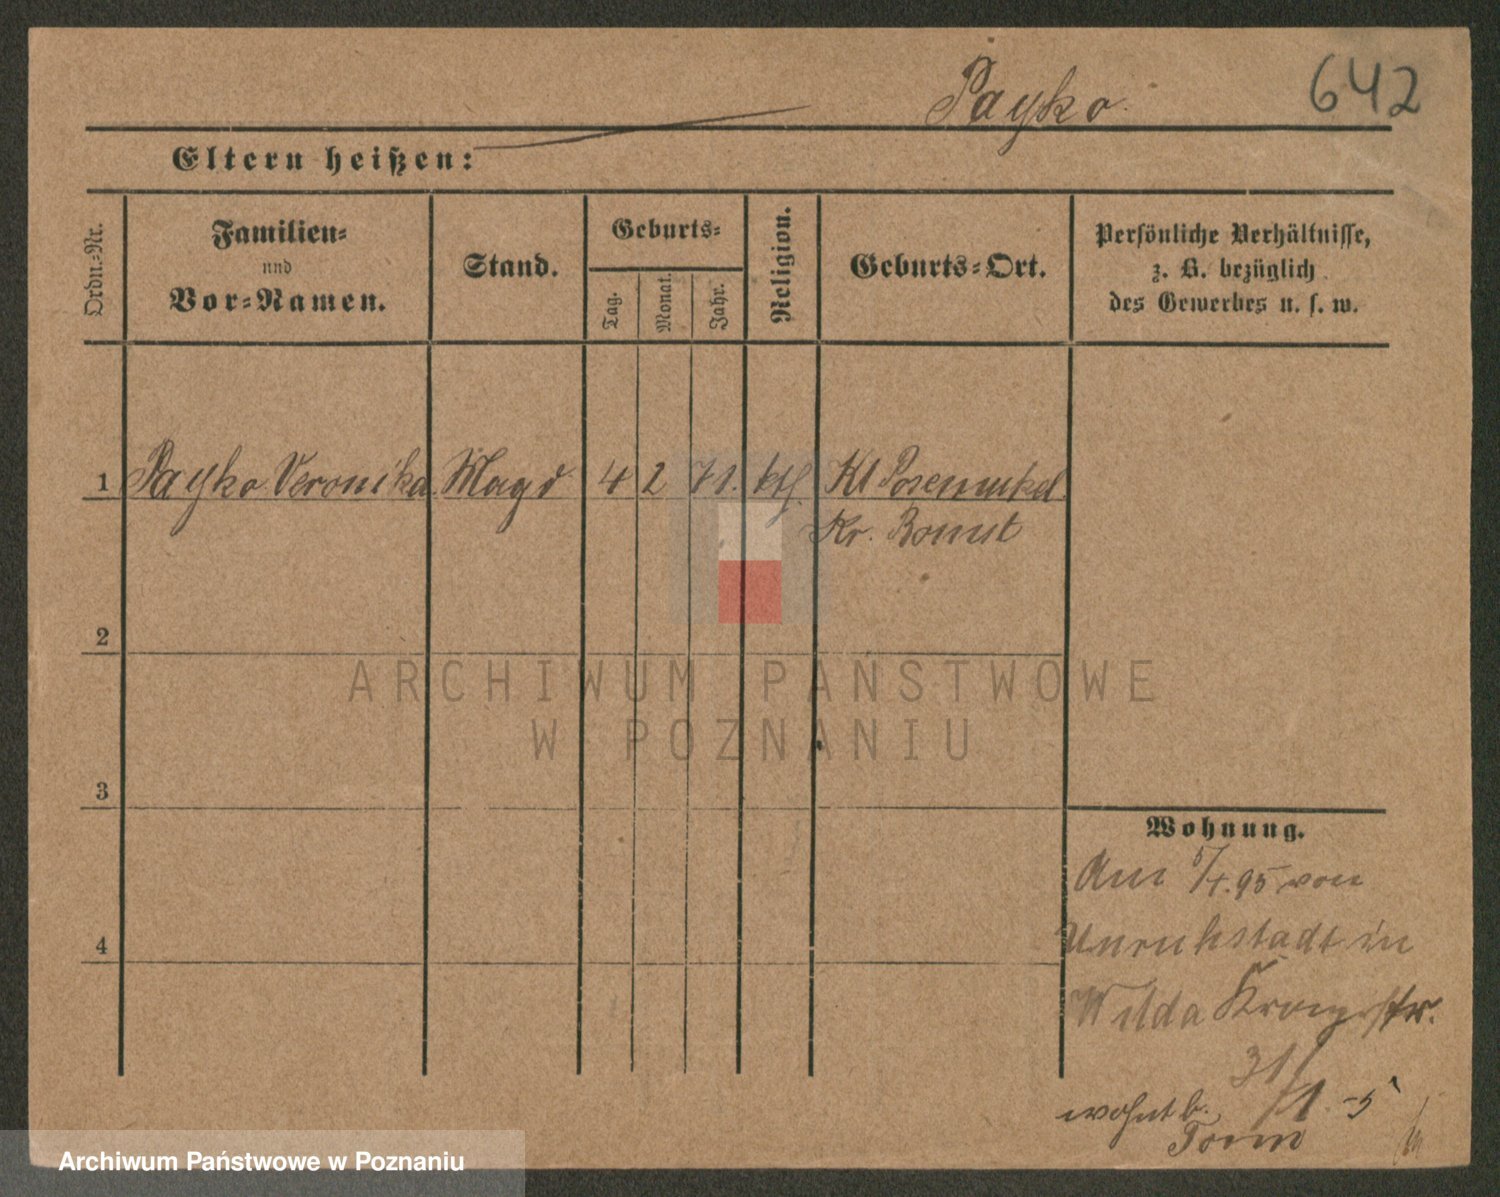 Payko.
642
Eltern heißen:
Ordn.-Nr.
Familien-
und
Vor-Namen.
Stand.
Geburts-
Tag.
Monat.
Jahr.
Religion.
Geburts-Ort.
Persönliche Verhältnisse,
z. B. bezüglich
des Gewerbes u. s. w.
1 Payko Veronika Magd 4 2 71. kth. Kl Posemukel
Kr. Bomst
2
ARCHIWUM PAŃSTWOWE
W POZNANIU
3
Wohnung.
Am 5/4.95 von
4
Unruhstadt in
Wilda Kronprstr.
31/1
wohnt b.
Archiwum Państwowe w Poznaniu